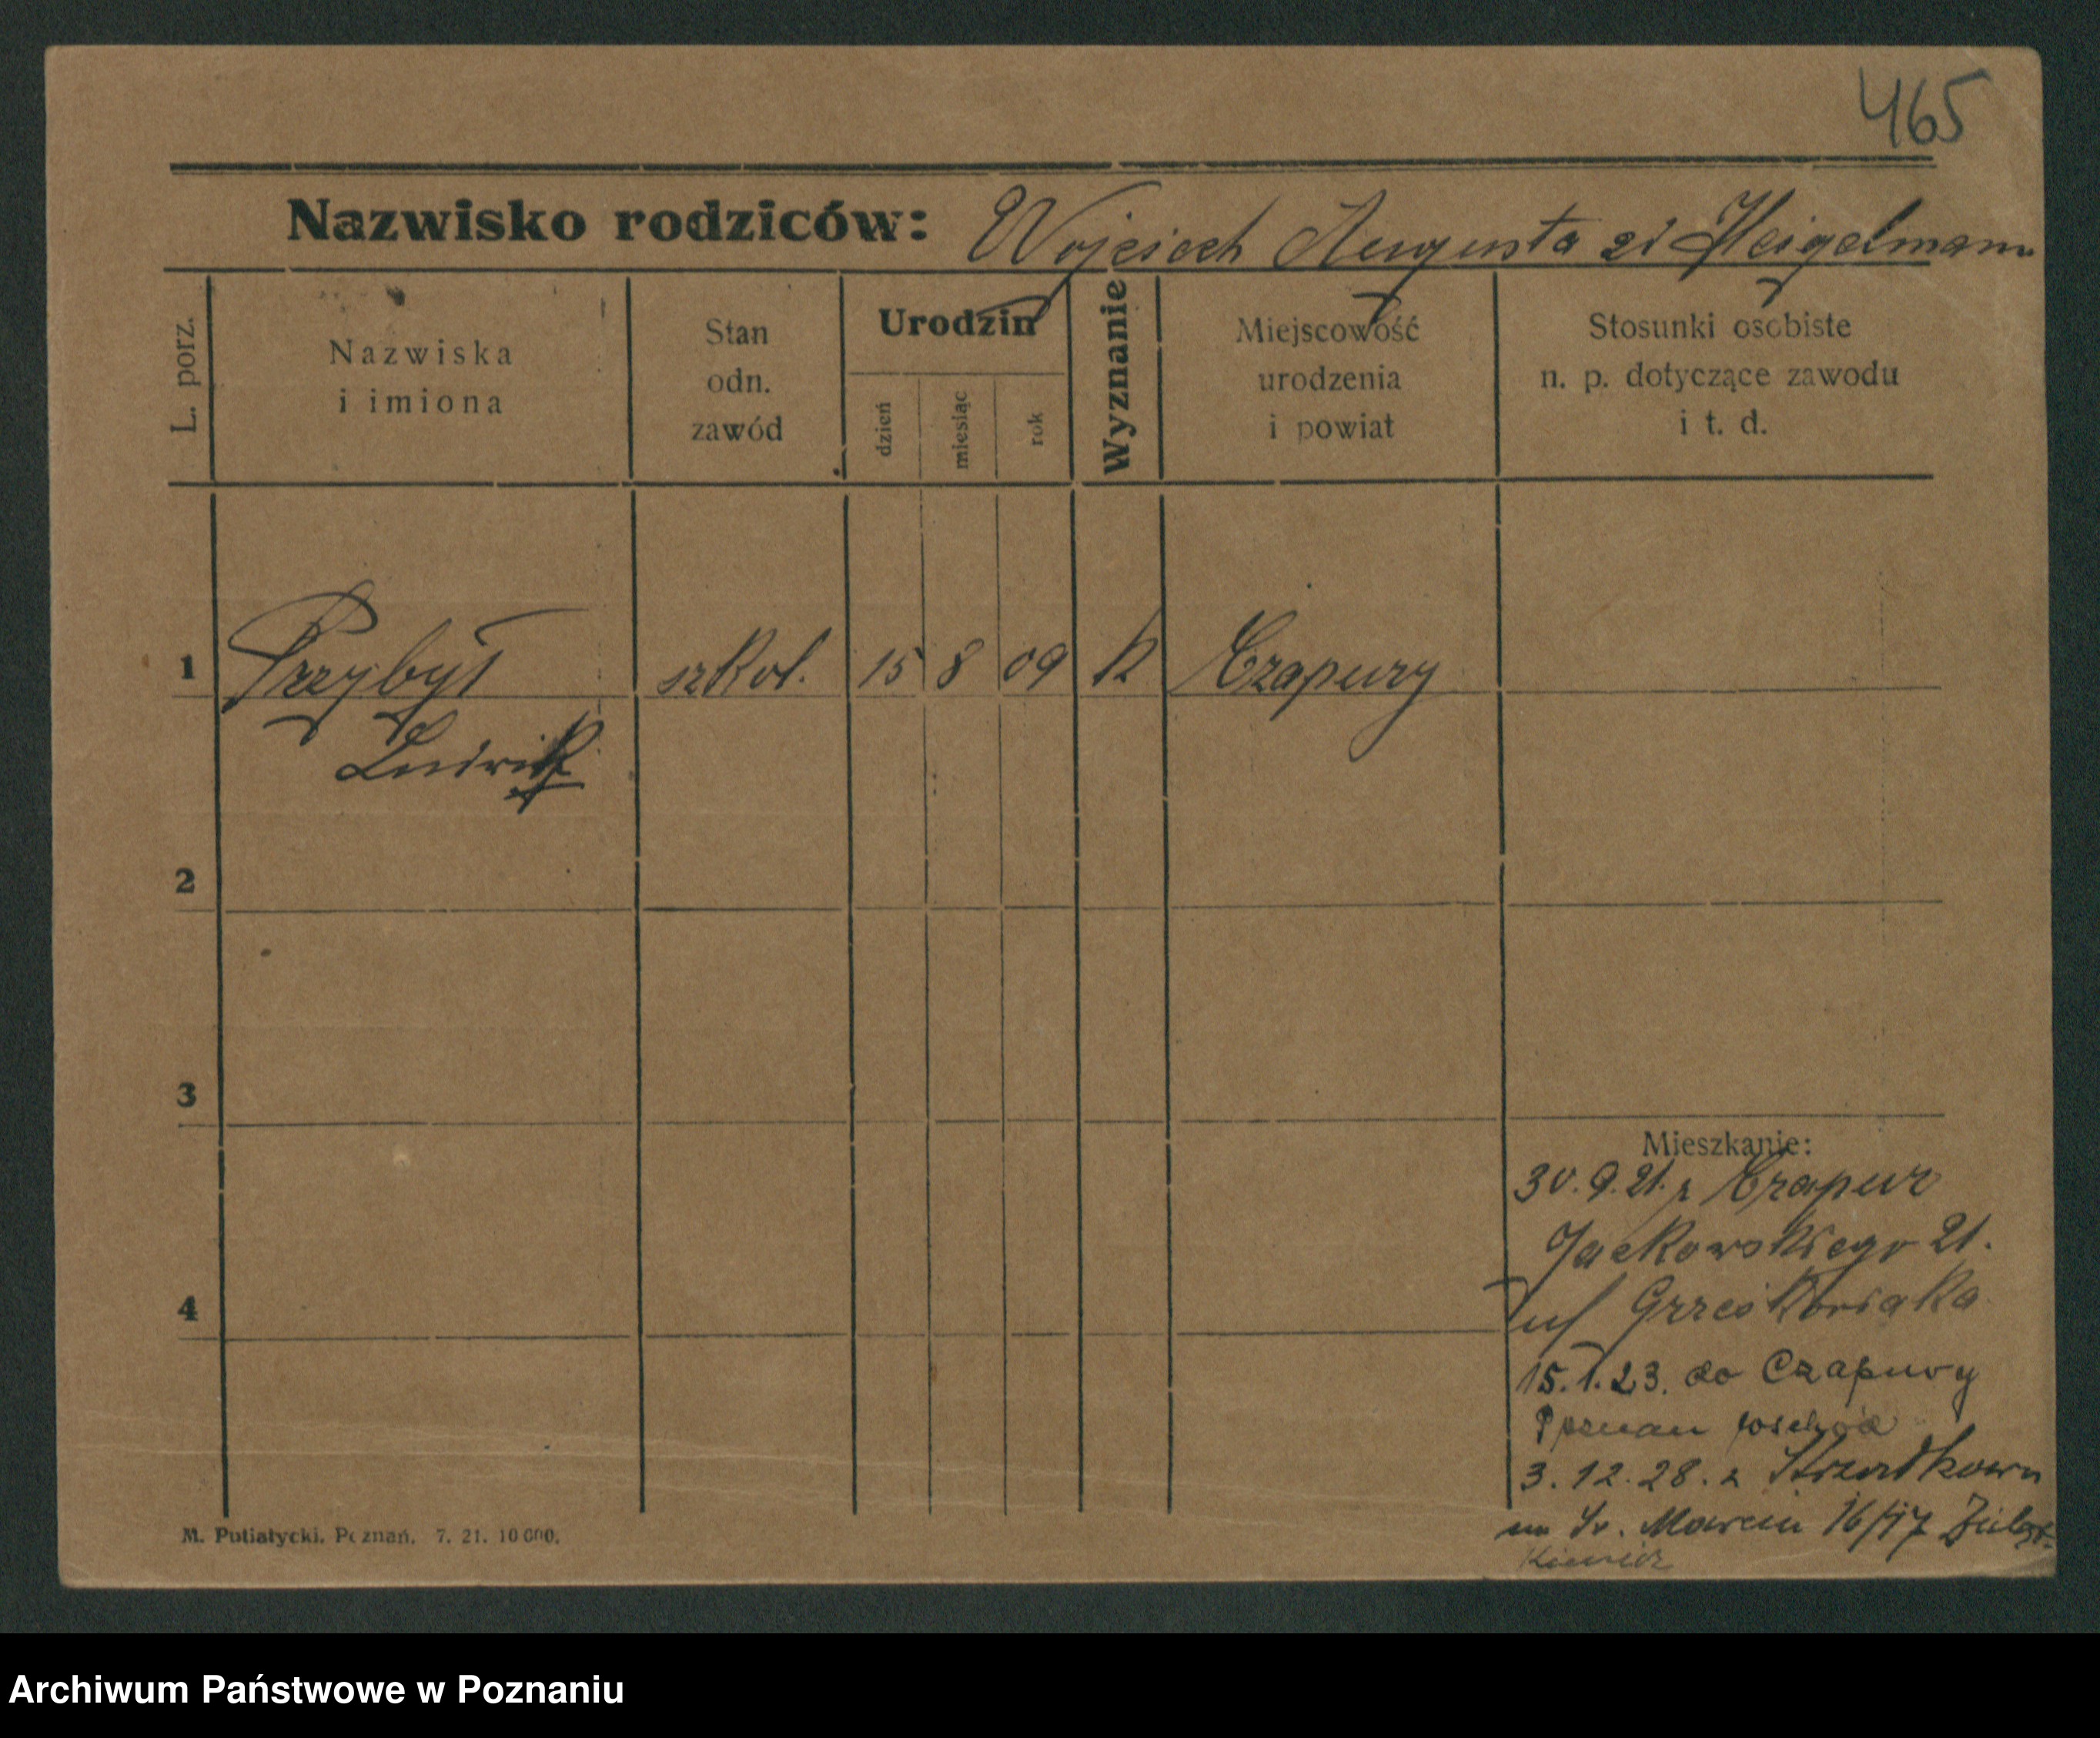 465
Nazwisko rodziców: Wojciech Augusta zd Heigelmann
L. porz.
Nazwiska
i imiona
Stan
odn.
zawód
Urodzin
dzień
miesiąc
rok
Wyznanie
Miejscowość
urodzenia
i powiat
Stosunki osobiste
n. p. dotyczące zawodu
i t. d.
1 Przybył szkol. 15 8 09 k Czapury
Ludwik
2
3
4
Mieszkanie:
30. 9. 21. z Czapur
Jackowskiego 21.
u/ Grześkowiaka
15. 1. 23. do Czapury
Poznan wschód
3. 12. 28. z
Św. Marcin 16/17
M. Putiatycki. Poznań. 7. 21. 10 000.
Archiwum Państwowe w Poznaniu